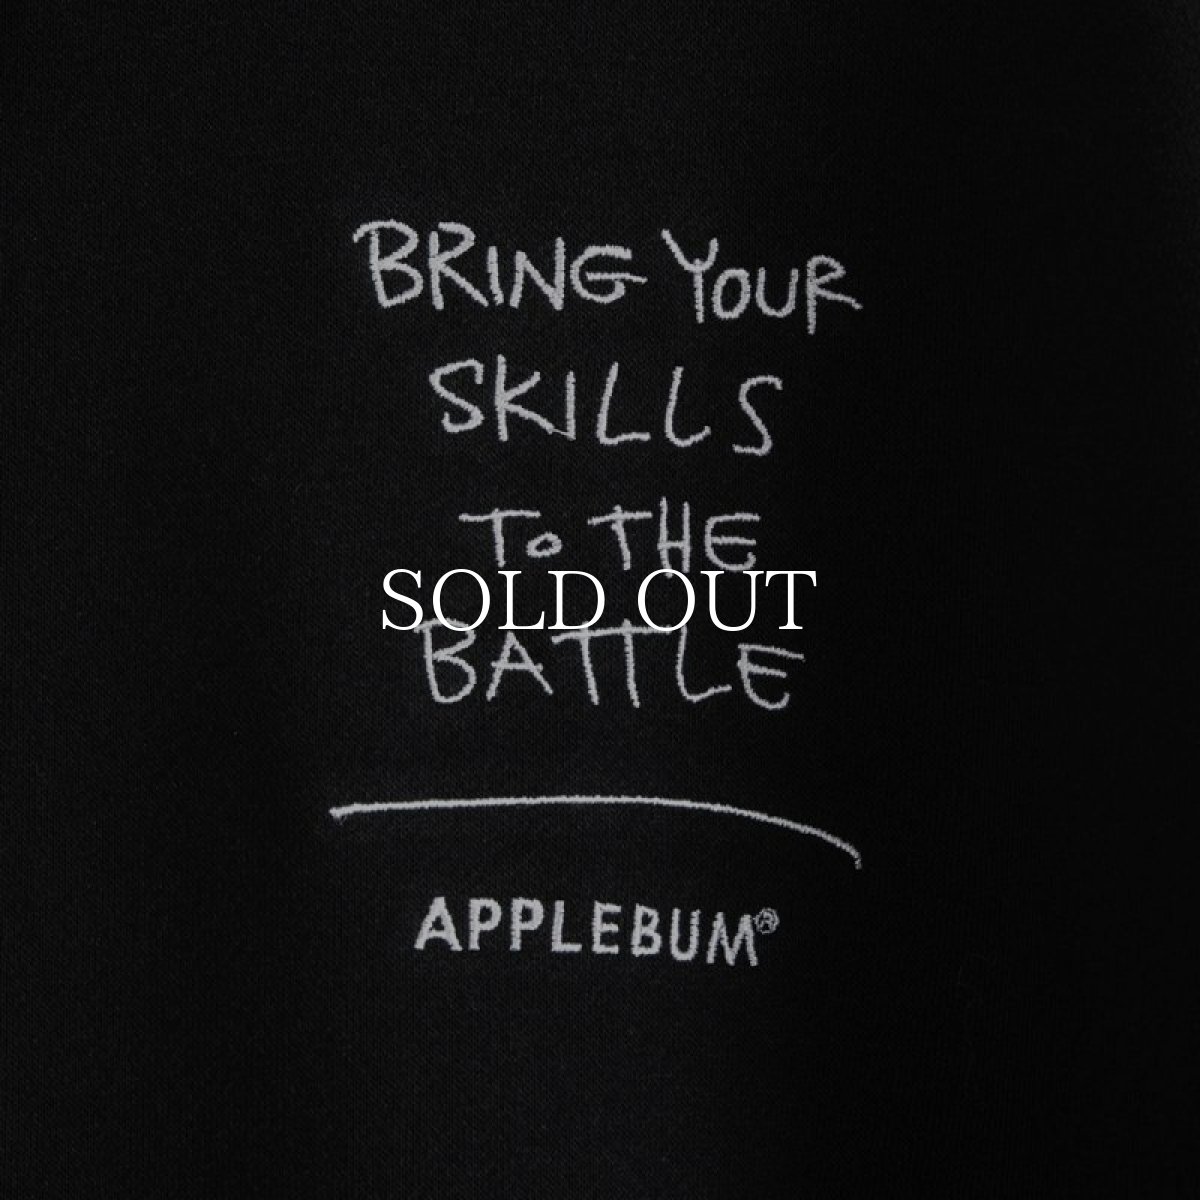 BRING YOUR
SKILLS
TO THE
SOLD OUT
BATTLE
APPLEBUM®